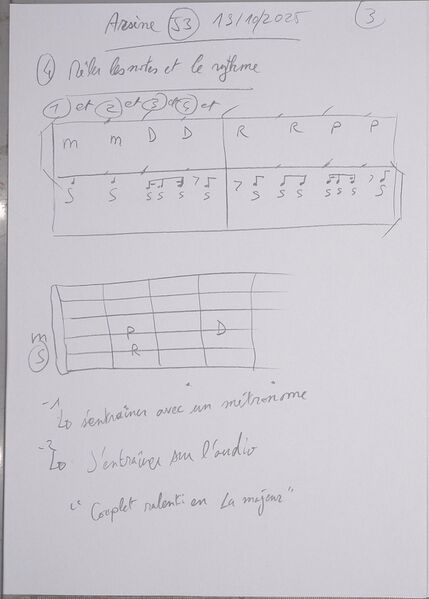 Arsène S3 13/10/2025 3
4 Mêler les notes et le rythme
1 et 2 et 3 et 4 et
m m D D R R P P
S S S S S S S S S S S S
P D
m
R
S
-1 s'entraîner avec un métronome
-2 S'entraîner sur l'audio
"Couplet ralenti en La majeur"